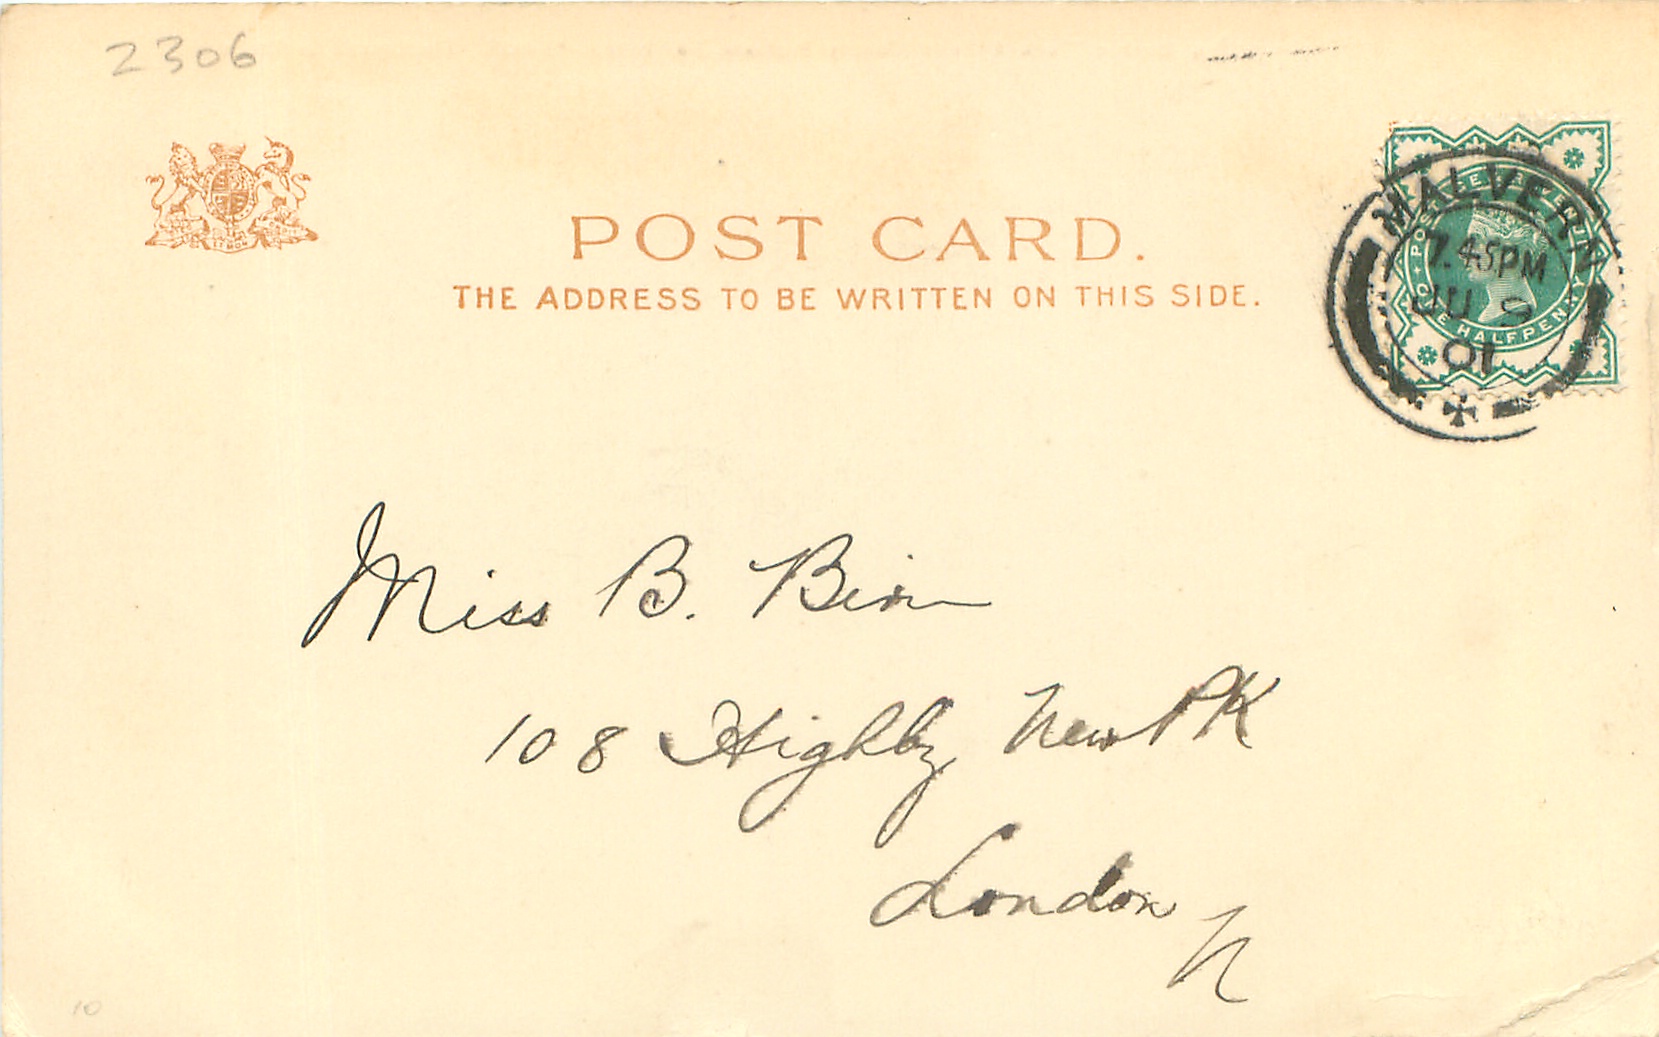 2306
POST CARD.
THE ADDRESS TO BE WRITTEN ON THIS SIDE.
MALVERN
7.45PM
JU 9
01
POSTAGE & REVENUE
ONE HALFPENNY
Miss B.
108 Highby New PK
London
N
10